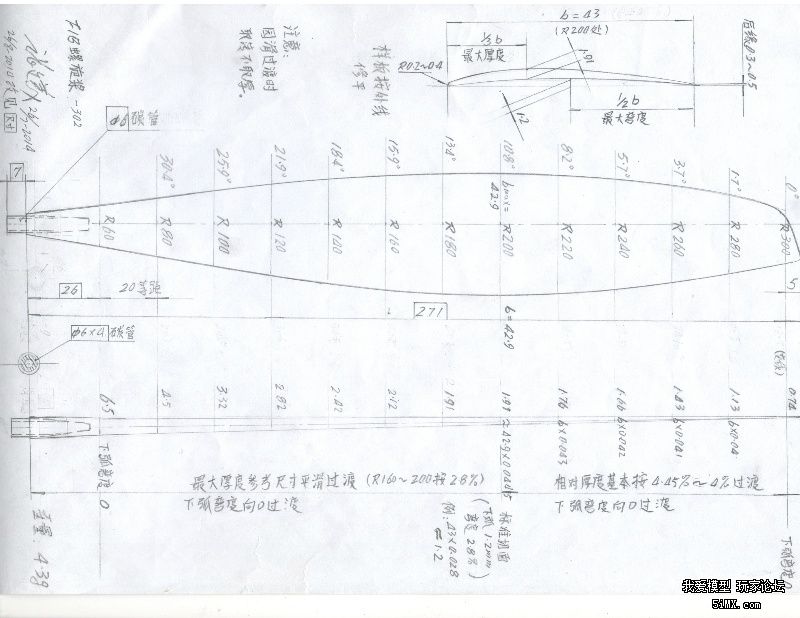 b=43
(R200处)
⅓b
最大厚度
1.91
R0.2~0.4
1.2
½b
最大弯度
后缘0.3~0.5
样板按外线
修平
注意:
F1B螺桨
-302
φ6碳管
7
30.4°
25.9°
21.9°
18.4°
15.9°
13.4°
10.8°
8.2°
5.7°
3.7°
1.7°
0°
bmax=
42.9
R60
R80
R100
R120
R140
R160
R180
R200
R220
R240
R260
R280
R300
5
26
20等距
271
b=42.9
φ6×4碳管
6.5
4.5
3.32
2.82
2.42
2.12
1.91
1.91
1.76
b×0.043
b×0.042
1.43
b×0.041
1.13
b×0.04
下弧弯度0
最大厚度参考尺寸平滑过渡(R160~200按2.8%)
下弧弯度向0过渡
相对厚度基本按4.45%~4%过渡
下弧弯度向0过渡
标准剖面
(下弧1.2mm
弯度2.8%)
例:43×0.028
=1.2
下弧弯度0
重量:43g
我爱模型 玩家论坛
5iMX.com